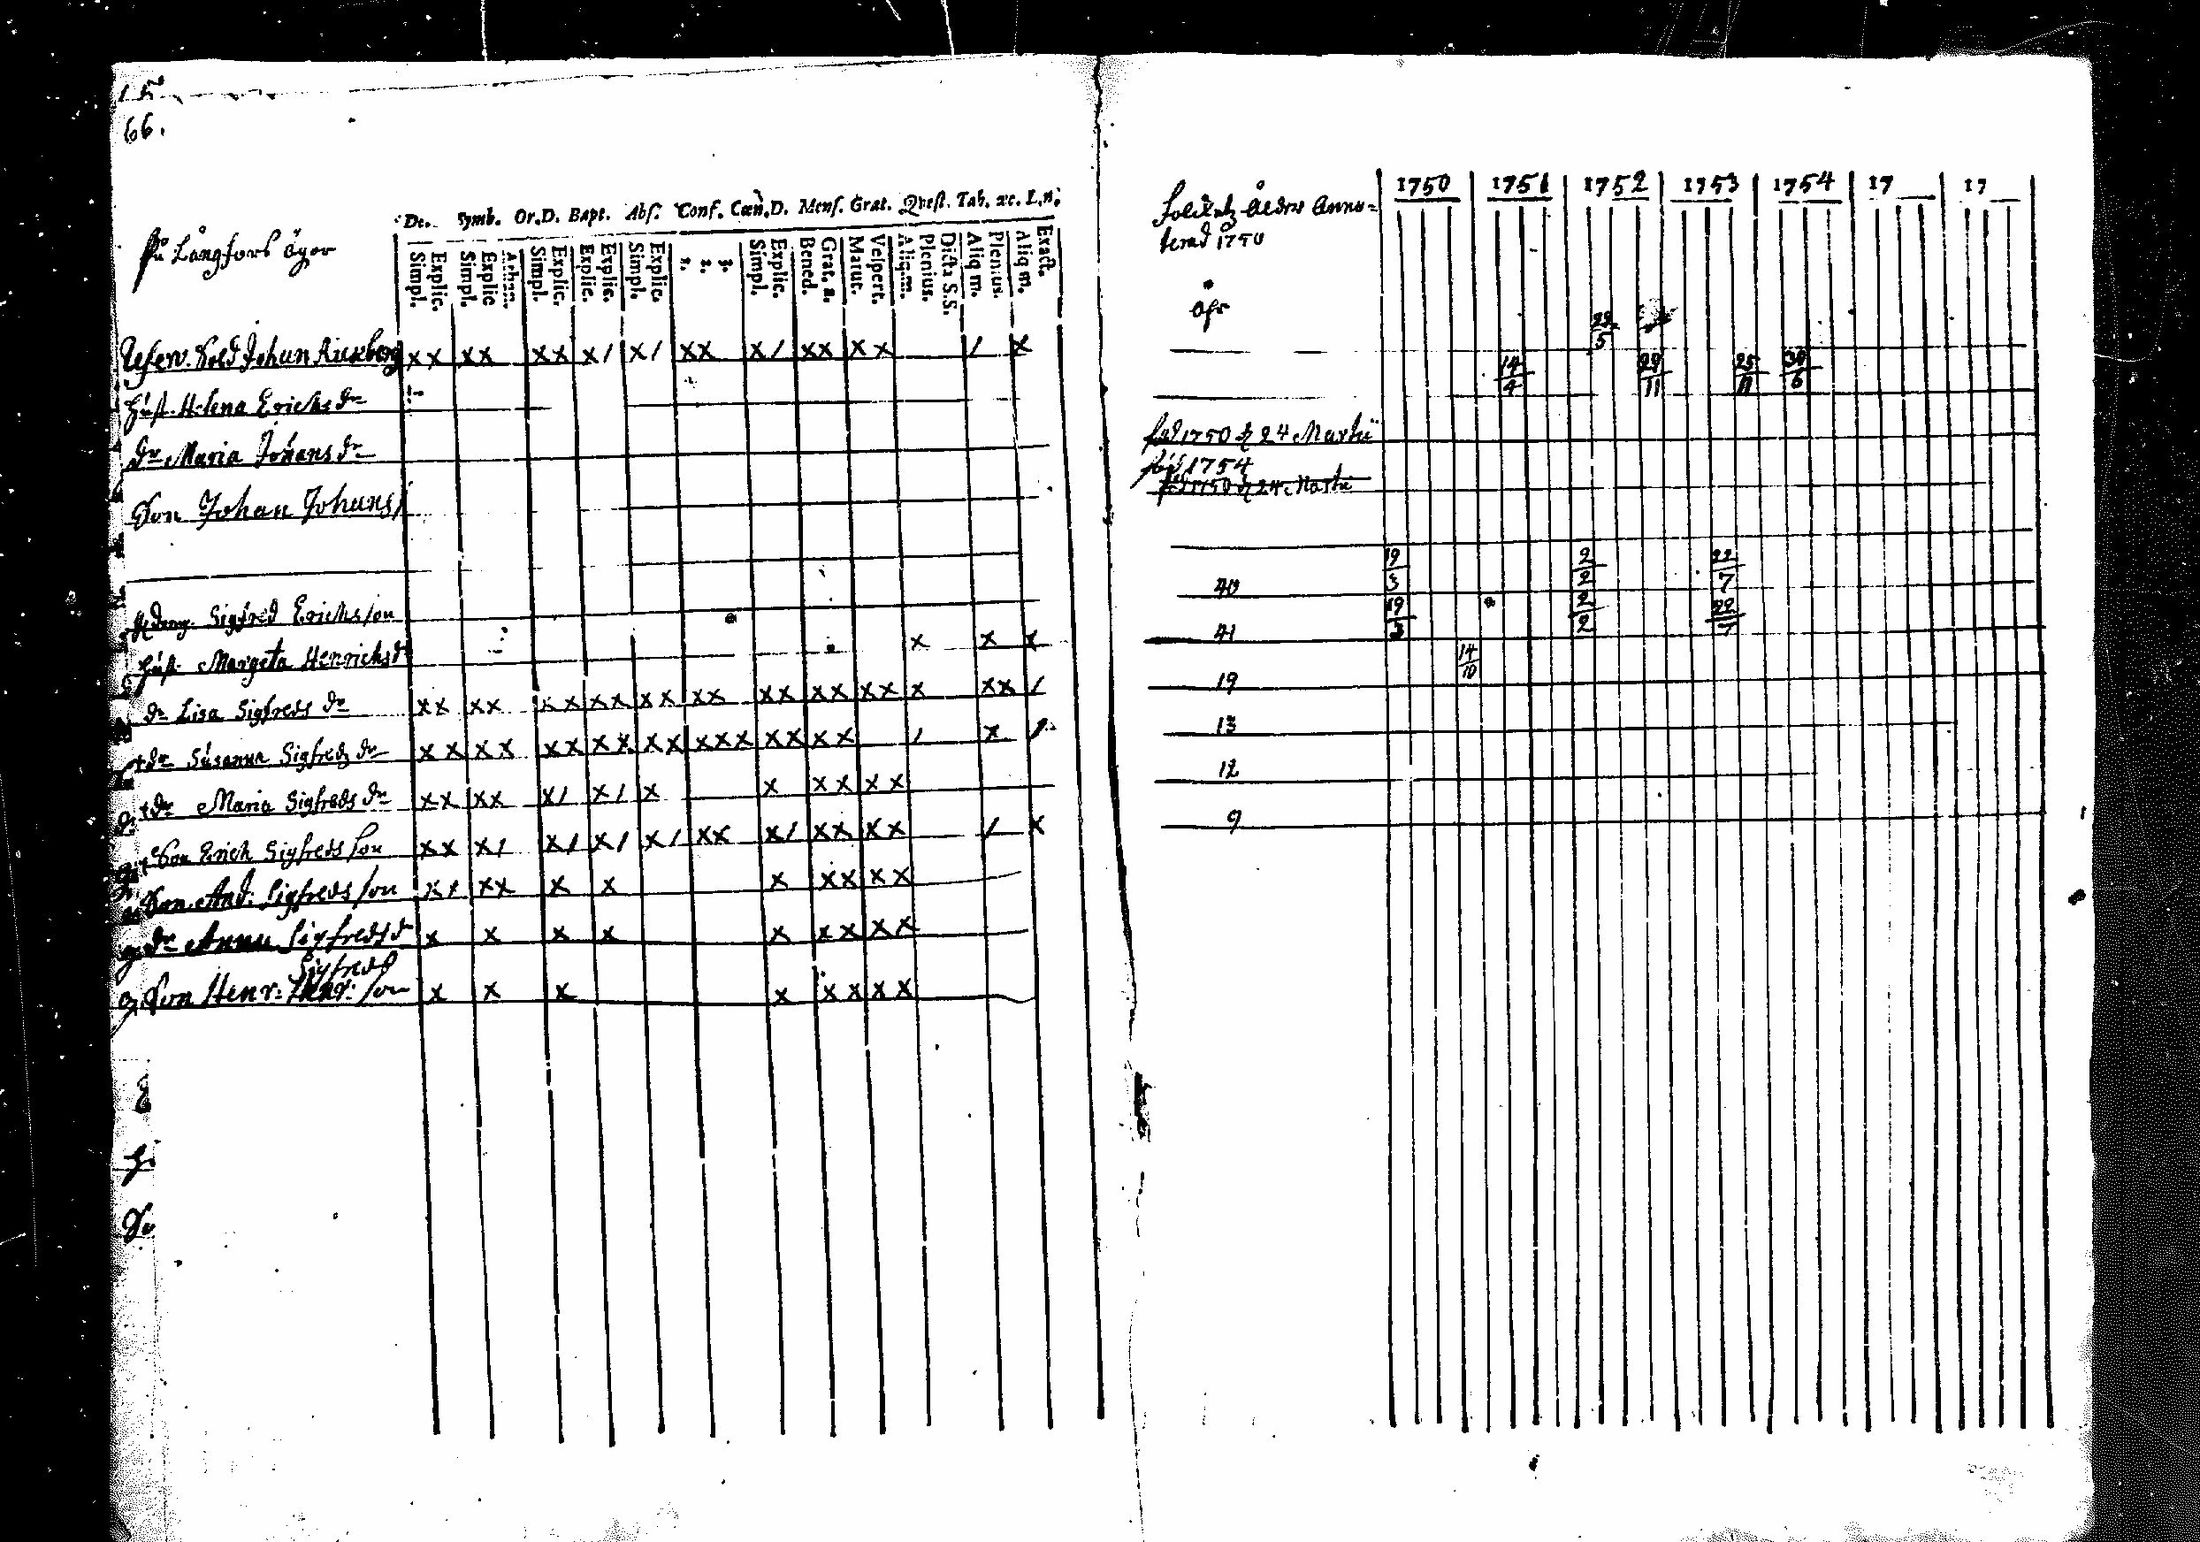 66.
På Långfors ägor
De. Symb. Or.D. Bapt. Abs. Conf. Cœn.D. Mens. Grat. Qvest. Tab. æc. L.n.
Simpl. Explic. Simpl. Explic Simpl. Explic. Explic. Explic. Simpl. Explic. 1. 2. 3. Simpl. Explic. Bened. Grat. a. Matut. Vespert. Aliq.m. Plenius. Dicta S.S. Aliq m. Plenius. Aliq m. Exact.
Johan xx xx xx x/ x/ xx x/ xx xx / x
Hust. Helena Erichs dr
dr Maria Johans dr
Son Johan Johans
Sigfred Erichsson
Hust. Margeta Henrichsd x x x
dr Lisa Sigfreds dr xx xx xx xx xx xx xx xx xx x xx /
dr Susanna Sigfreds dr xx xx xx xx xx xxx xx xx / x /
dr Maria Sigfreds dr xx xx x/ x/ x x xx xx
Son Erich Sigfredsson xx x/ x/ x/ x/ xx x/ xx xx / x
Son And: Sigfredsson xx xx x x x xx xx
dr Anna Sigfredsd x x x x x xx xx
Sigfreds
Son Henr: son x x x x xx xx
1750 1751 1752 1753 1754 17 17
1750
29/5
14/4 29/11 25/11 30/6
föd 1750 d 24 Martii
föd 1754
föd 1750 d 24 Martii
40 19/3 2/2 22/7
41 19/3 2/2 22/7
19 14/10
13
12
9